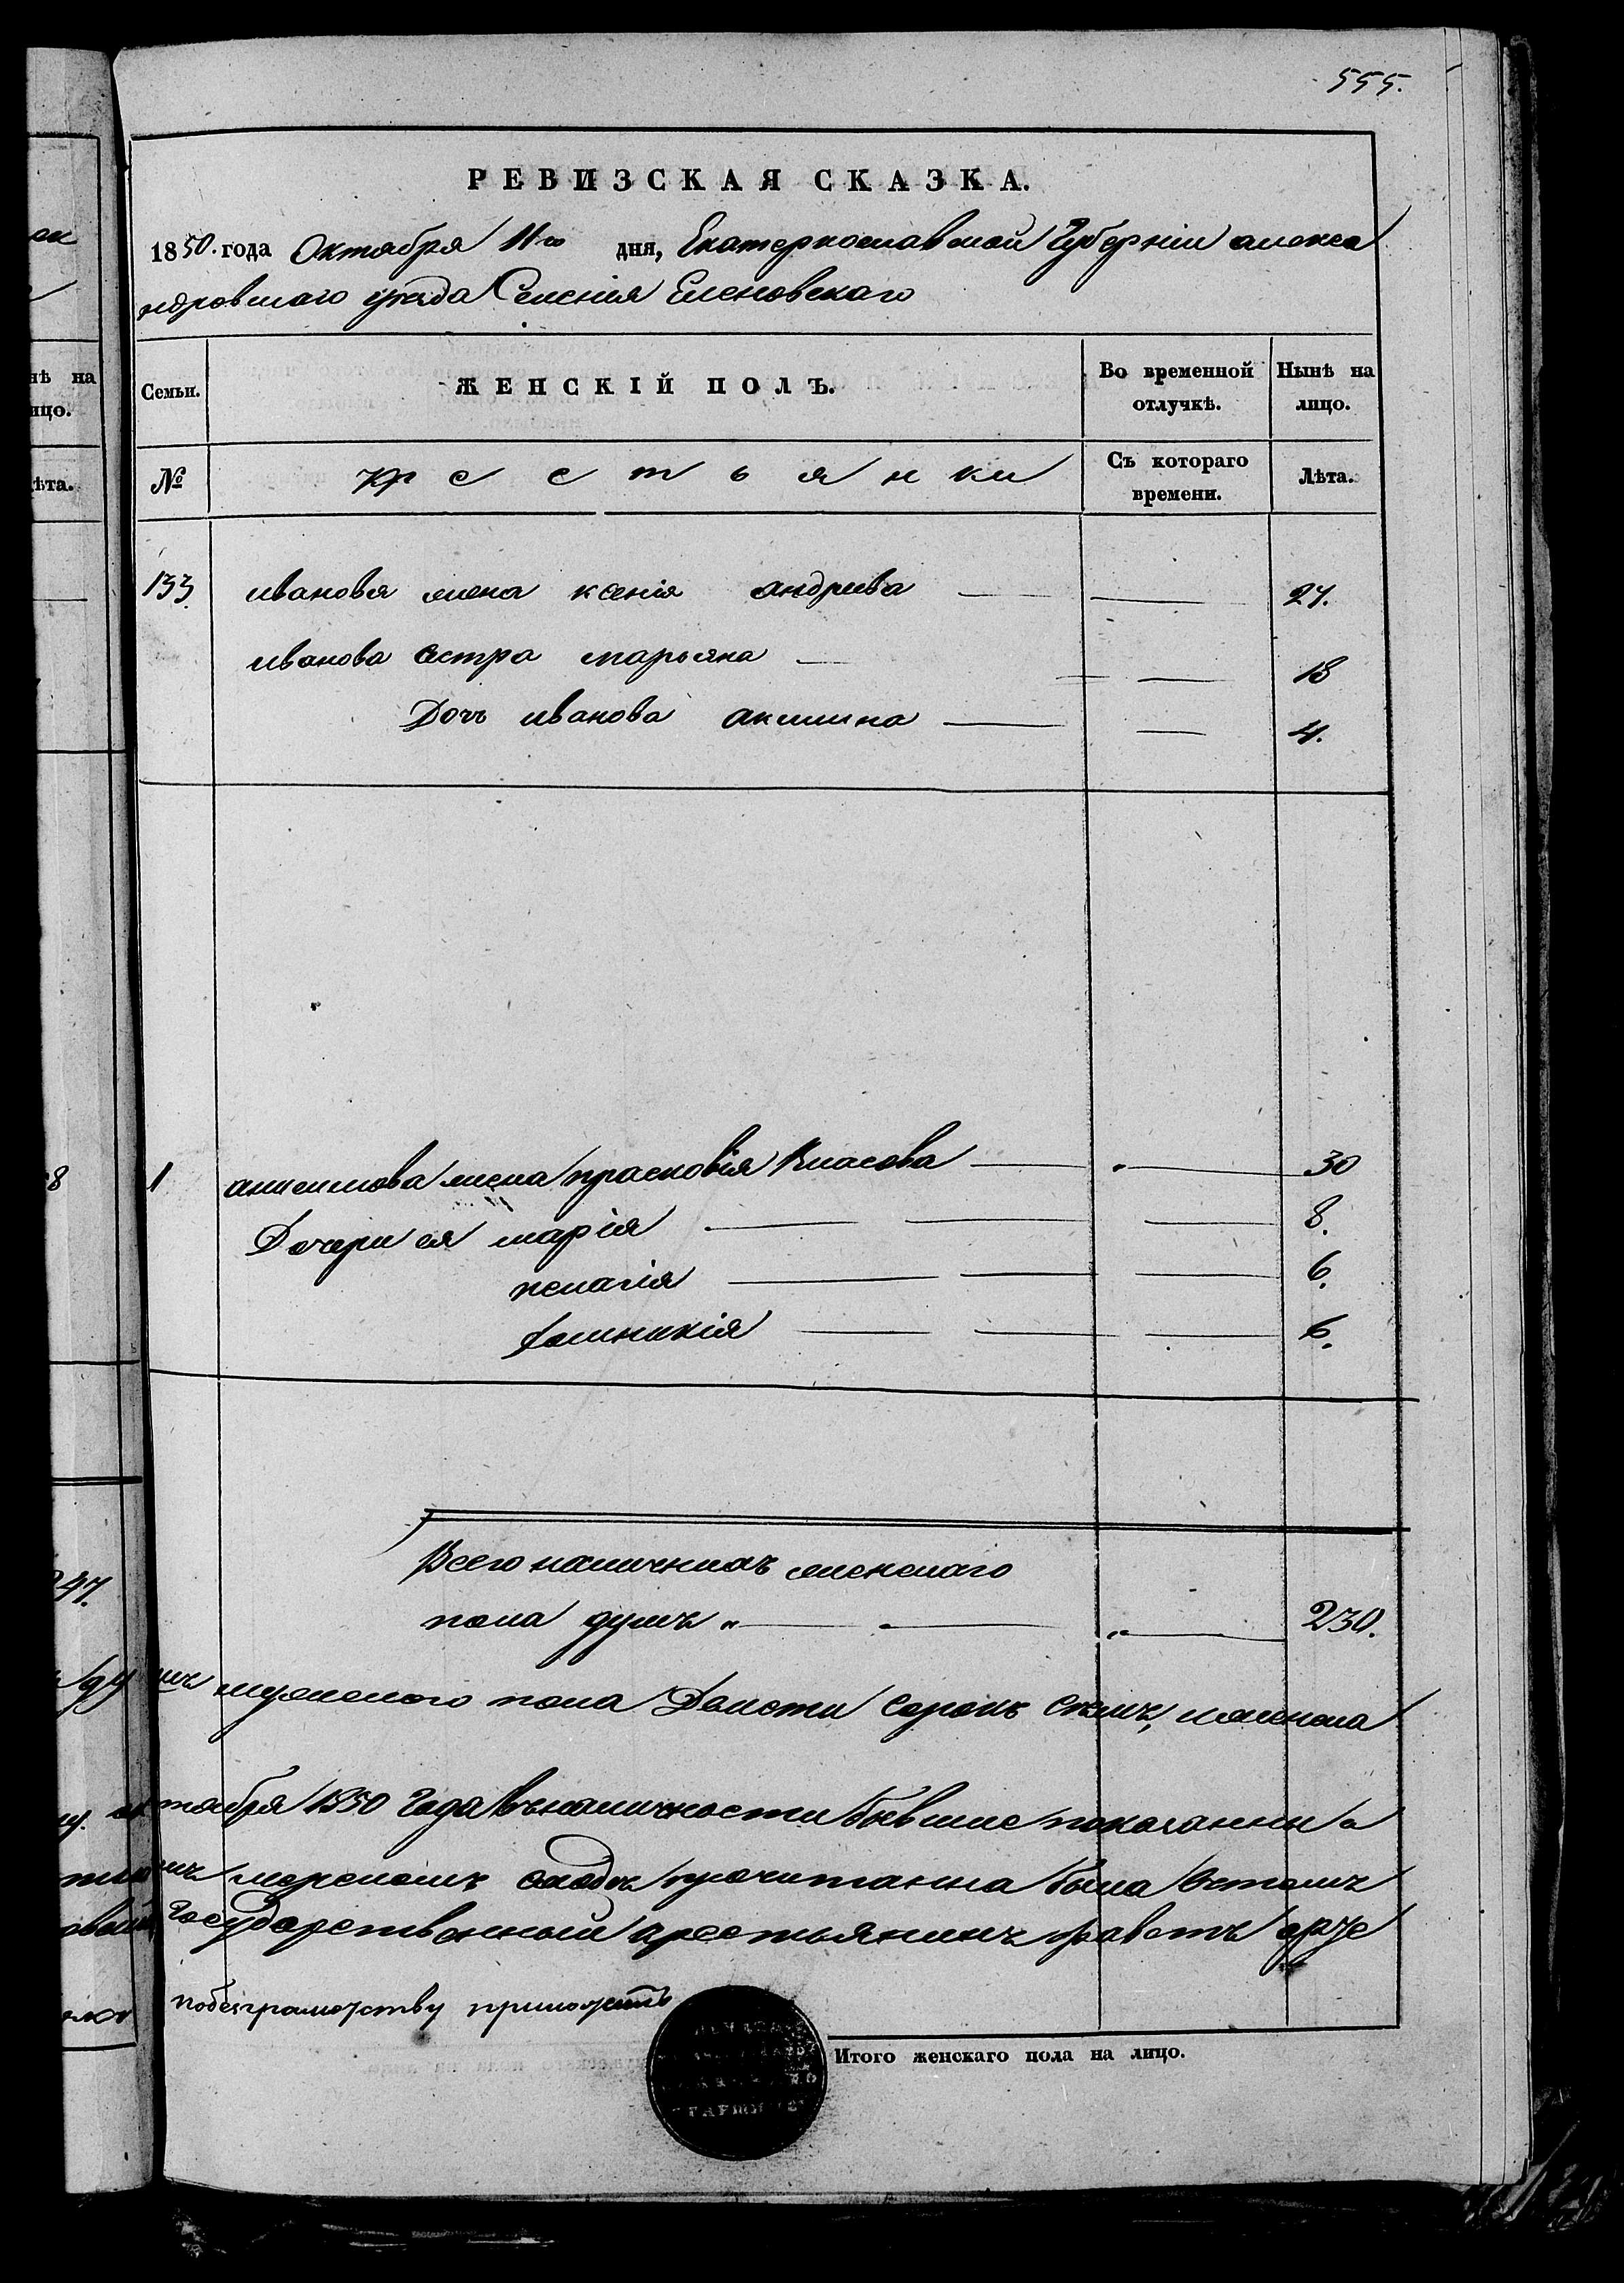 555.
РЕВИЗСКАЯ СКАЗКА.
1850. года Октября 11го дня, Екатеринославской Губернiи алекса
ндровскаго уѣзда Селенiя Еленовскаго
Семьи. ЖЕНСКIЙ ПОЛЪ. Во временной отлучкѣ. Нынѣ на лицо.
№ крестьянки Съ котораго времени. Лѣта.
133. иванова жена ксенiя андреева 27.
иванова сестра марьяна 18
Дочь иванова акилина 4.
1 анисимова жена прасковiя Власова 30
Дочери ея марiя 8.
пелагiя 6.
домникiя 6.
Всего наличныхъ женскаго
пола душъ 230.
мужескаго пола Двести сорокъ семь, женска
октября 1850 Года въ наличности бывшие показанны
прочитанна была
Государственный крестьянинъ
побезграмотству приложилъ
Итого женскаго пола на лицо.
нѣ на
ицо.
ѣта.
8
247.